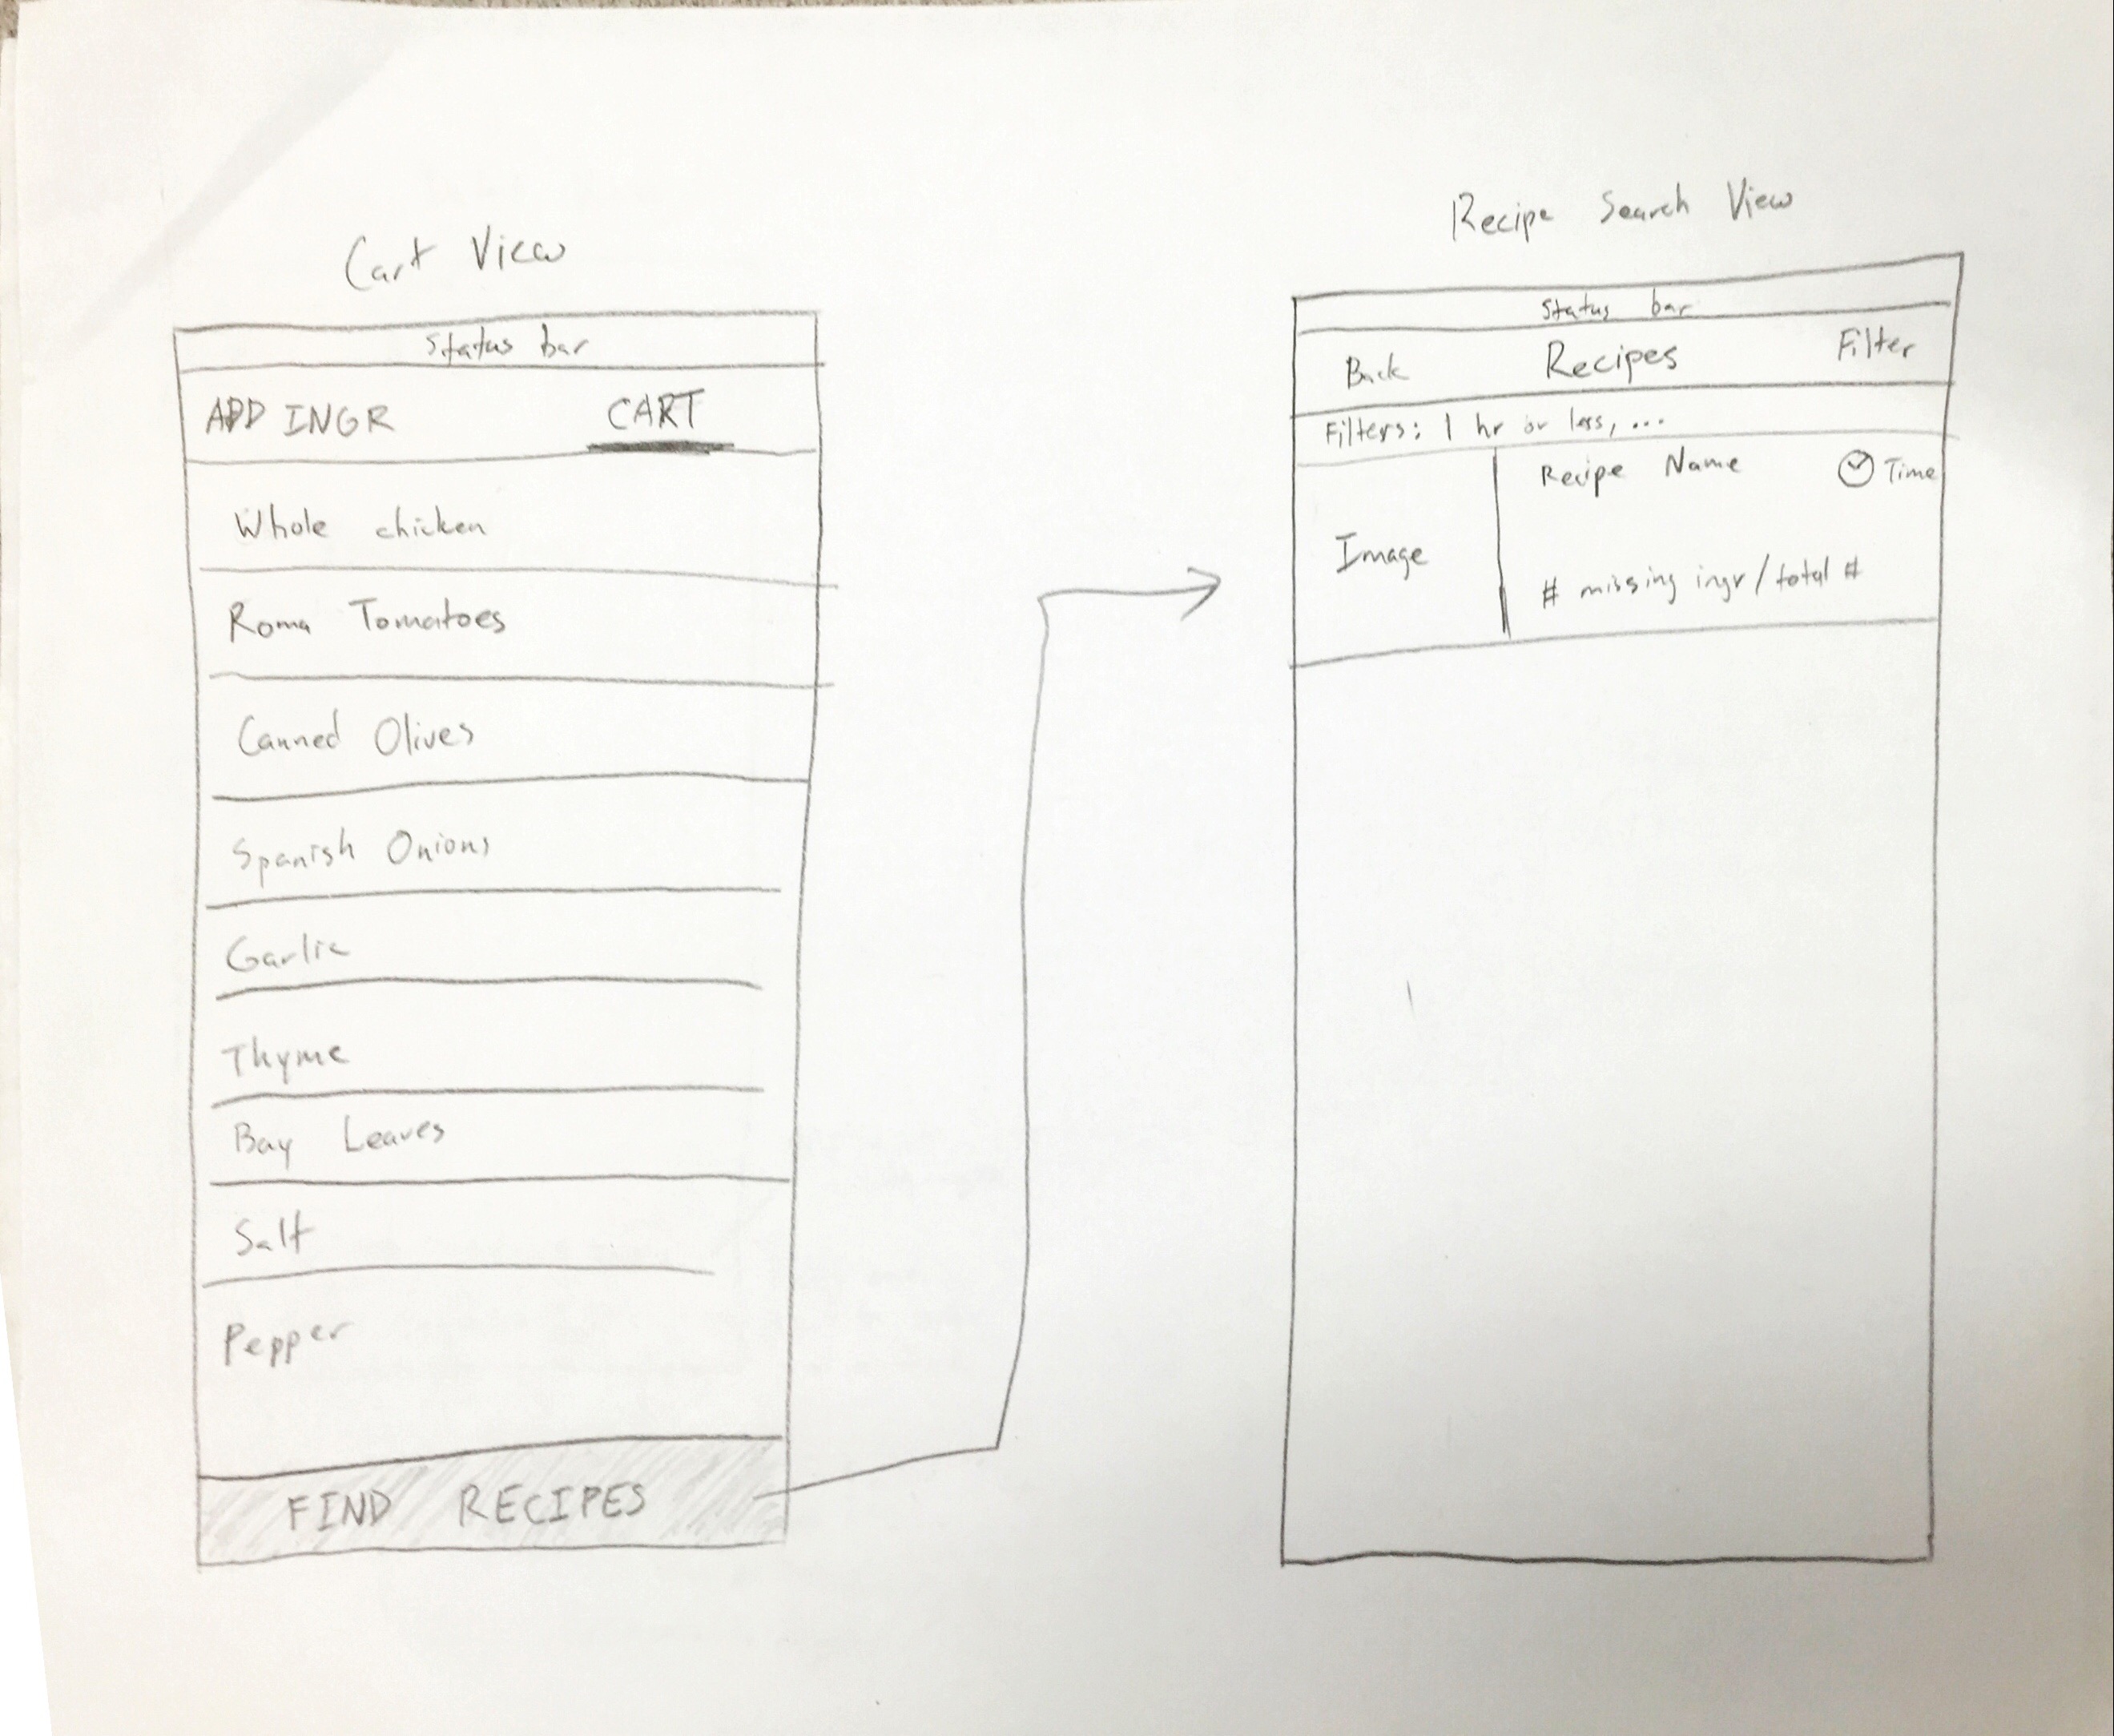 Cart View
Status bar
ADD INGR CART
Whole chicken
Roma Tomatoes
Canned Olives
Spanish Onions
Garlic
Thyme
Bay Leaves
Salt
Pepper
FIND RECIPES
Recipe Search View
Status bar
Back Recipes Filter
Filters: 1 hr or less, ...
Recipe Name Time
Image
# missing ingr/total #